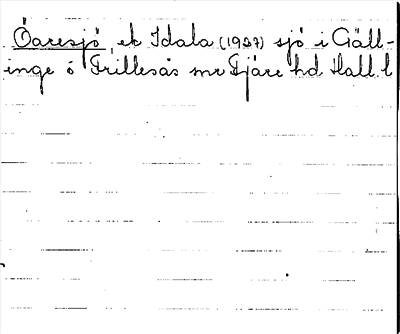 Öaresjö, ek Idala (1927) sjö i Gäll-
inge o Frillesås snr Fjäre hd Hall l